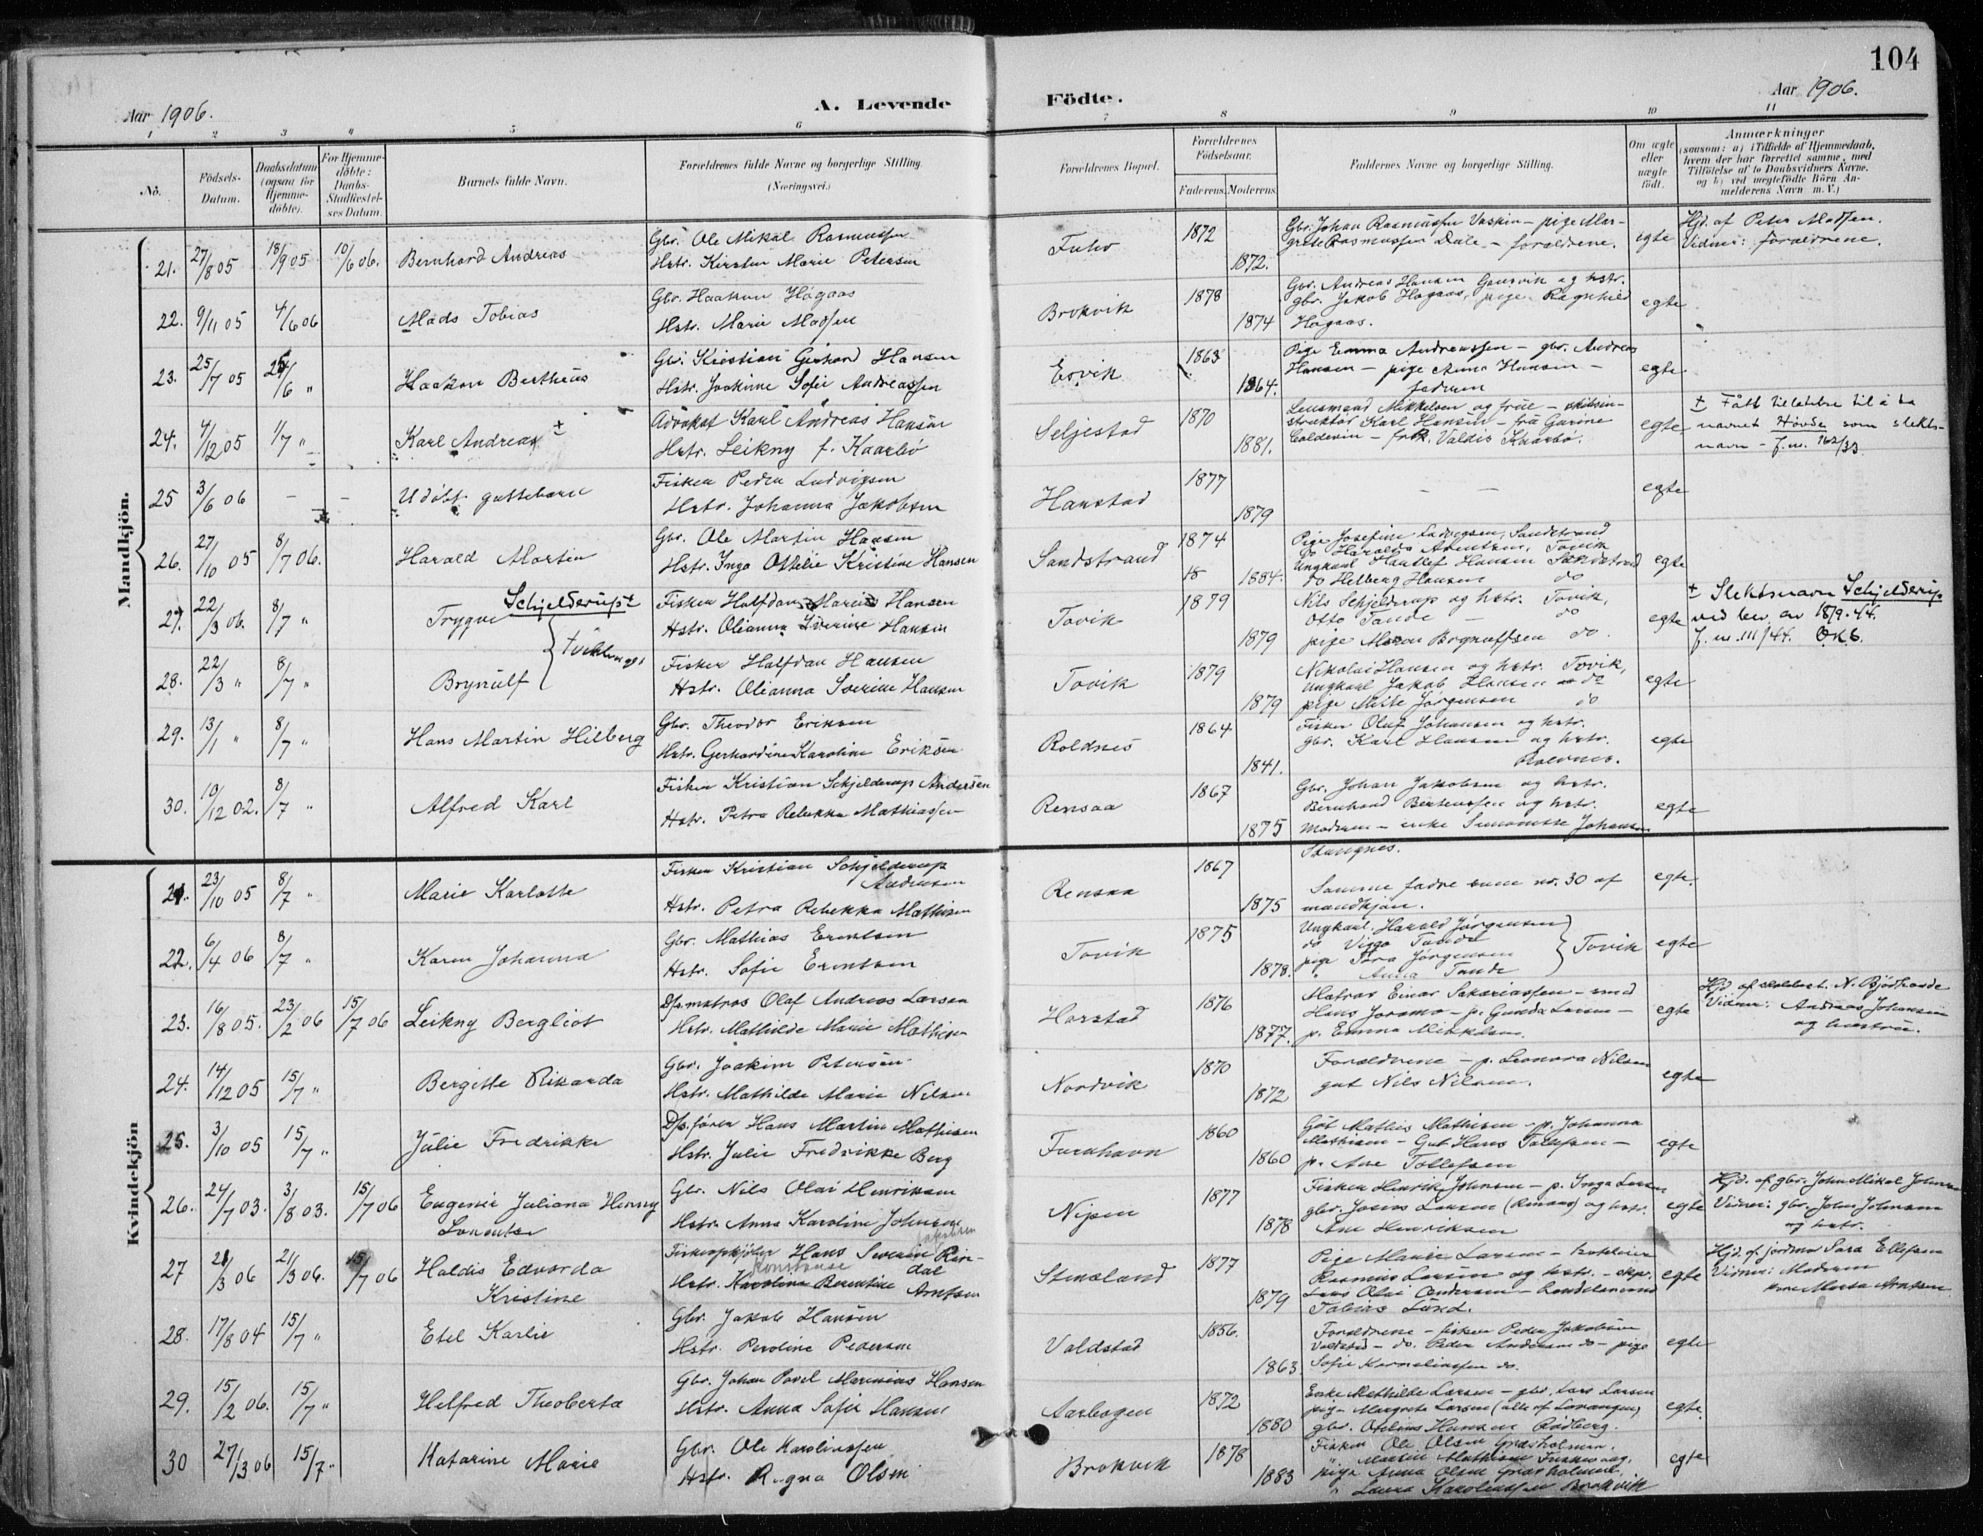 104
Aar 1906.
A. Levende Födte.
Aar 1906.
1 2 3 4 5 6 7 8 9 10 11
No.
Födsels-Datum.
Daabsdatum (ogsaa for Hjemme-döbte).
For Hjemme-döbte: Daabs-Stadfæstel-ses Datum.
Barnets fulde Navn.
Forældrenes fulde Navne og borgerlige Stilling. (Næringsvei.)
Forældrenes Bopæl.
Forældrenes Födselsaar.
Faderens. Moderens.
Faddernes Navne og borgerlige Stilling.
Om ægte eller uægte födt.
Anmærkninger
(saasom: a) i Tilfælde af Hjemmedaab, hvem der har forrettet samme, med Tilföielse af to Daabsvidners Navne. og b) ved uægtefödte Börn An-melderens Navn m. V.)
Mandkjön.
21. 27/8 05 18/9 05 10/6 06. Bernhard Andreas
Gbr. Ole Mikal Rasmussen
Hstr. Kirsten Marie Petersen
1872 1872.
Gbr. Johan Rasmussen - pige Mar-
grete Rasmussen Dale - forældrene.
egte
Hjd. af Peter Madsen.
Vidner: forældrene.
22. 9/11 05 4/6 06 Mads Tobias
Gbr. Haakon Hagaas
Hstr. Marie Madsen
Brokvik 1878 1874
Gbr. Andreas Hansen og hstr.
gbr. Jakob Hagaas, pige Ragnhild
Hagaas.
egte
23. 25/7 05 24/6 " Haakon Bertheus
Gbr. Kristian Gerhard Hansen
Hstr. Joakime Sofie Andreassen
Ervik 1863 1864.
Pige Emma Andreassen - gbr. Andreas
Hansen - pige Anna Hansen -
faderen
egte
24. 4/12 05 1/7 " Karl Andreas ±
Advokat Karl Andreas Hansen
Hstr. Leikny f. Kaarbø
Seljestad 1870 1881.
Lensmand Mikkelsen og frue -
Karl Hansen - fru
- frk. Valdis Kaarbø.
egte
± Fått tillatelse til å ta
navnet Hovde som slekts-
navn - J.nr. 162/33
25 3/6 06 - - Udøbt guttebarn
Fisker Peder Ludvigsen
Hstr. Johanna Jakobsen
Harstad 1877 1879
- -
egte
26. 27/10 05 8/7 06. Harald Martin
Gbr. Ole Martin Hansen
Hstr. Inga Ottilie Kristine Hansen
Sandstrand 1874 18 1884.
Pige Josefine Ludvigsen, Sandstrand
do Tovik
Ungkarl Hansen Sandstrand
do Helberg Hansen do
egte
27. 22/3 06. 8/7 " Trygve Schjelderup ±
Fisker Halfdan Hansen
Hstr. Olianna Severine Hansen
Tovik 1879 1879
Nils Schjelderup og hstr. Tovik,
Otto Tande - do
pige Brynulfsen do.
egte
± Slektsnavn Schjelderup
ved bev. av 18/9-44.
J.nr. 111/44. OKS.
Tvillinger
28. 22/3 " 8/7 " Brynulf
Fisker Halfdan Hansen
Hstr. Olianna Severine Hansen
Tovik 1879 1879
Nikolai Hansen og hstr. Tovik,
Ungkarl Jakob Hansen do
pige Mette Jørgensen do
egte
29. 13/1 " 8/7 " Hans Martin Hilberg
Gbr. Theodor Eriksen
Hstr. Gerhardine Karoline Eriksen
Roldnes 1864 1841.
Fisker Oluf Johansen og hstr.
gbr. Karl Hansen og hstr.
Roldnes.
egte
30. 10/12 02. 8/7 " Alfred Karl
Fisker Kristian Schjelderup Andersen
Hstr. Petra Rebekka Mathiassen
Rensaa 1867 1875
Gbr. Johan Jakobsen og hstr.
Bernhard og hstr.
Moderen - enke Johansen
Stangnes.
egte
Kvindekjön
21. 23/10 05 8/7 " Marie Karlotte
Fisker Kristian Schjelderup
Andersen
Hstr. Petra Rebekka Mathisen
Rensaa 1867 1875
Samme fadre som no. 30 af
mandkjøn.
egte.
22. 6/4 06 8/7 " Karen Johanna
Gbr. Mathias Erntsen
Hstr. Sofie Erntsen
Tovik 1875 1878.
Ungkarl Harald Jørgensen
do Viggo Tande
pige Tora Jørgensen
" Anna Tande
Tovik egte
23. 16/8 05. 23/2 06 15/7 06 Leikny Bergliot
Dps. matros Olaf Andreas Larsen
Hstr. Mathilde Marie Mathisen
Harstad 1876 1877.
Matros Einar Sakariassen - smed
Hans Joramo - p. Gunda Larsen -
p. Emma Mikkelsen.
egte
Hjd. af N. Bjøstrande
Vidner: Andreas Johansen
og hustru.
24. 14/12 05 15/7 " Bergitte Rikarda
Gbr. Joakim Petersen
Hstr. Mathilde Marie Nilsen
Nordvik 1870 1872
Forældrene - p. Leonora Nilsen
gut Nils Nilsen.
egte
25. 3/10 05 15/7 " Julie Fredrikke
Dps. fører Hans Martin Mathisen
Hstr. Julie Fredrikke Berg
Furuhavn 1860 1860
Gut Mathis Mathisen - p. Johanna
Mathisen - Gut Hans Tollefsen -
p. Ane Tollefsen
egte
26. 24/7 03. 3/8 03. 15/7 06 Eugenie Juliana Henny
Lorentze
Gbr. Nils Olai Henriksen
Hstr. Anna Karoline Johnsen
Nipen 1877 1878
Fisker Henrik Johnsen - p. Inga Larsen
gbr. Larsen og hstr.
Ane Henriksen
egte
Hjd. af gbr. John Mikal Johnsen
Vidner: gbr. John Johnsen
og hstr.
27 21/3 06 21/3 06. 15/7 06 Haldis Edvarda
Kristine
Fiskeopkjøber Hans Severin Rin-
dal
Konstanse
Hstr. Karoline Berentine Arntsen
Stensland 1877 1879
Pige Marie Larsen -
Rasmus Larsen og hstr. - skpr.
Lars Olai Andersen -
Tobias Lund.
egte
Hjd. af jordmor Sara Ellefsen
Vidner: Moderen
Marta Arntsen
28. 17/8 04 15/7 " Etel Karlie
Gbr. Jakob Hansen
Hstr. Peroline Pedersen
Valdstad 1856. 1863
Forældrene - fisker Peder Jakobsen
Valstad - do. Peder Andersen do - pige
Sofie Korneliussen do.
egte
29. 15/2 06. 15/7 " Helfred Theoberta
Gbr. Johan Povel Marinius Hansen
Hstr. Anna Sofie Hansen
Aarbogen 1872 1880
Enke Mathilde Larsen - gbr. Lars Larsen
pige Margrete Larsen (alle af Lavangen)
gbr. Hansen Rødberg.
egte
30 27/3 06 15/7 " Katarine Marie
Gbr. Ole Karolinssen
Hstr. Ragna Olsen
Brokvik 1878 1883
Fisker Ole Olsen Græsholmen.
" Martin Mathisen
pige Anna Olsen Græsholmen.
" Laura Karolinssen Brokvik
egte